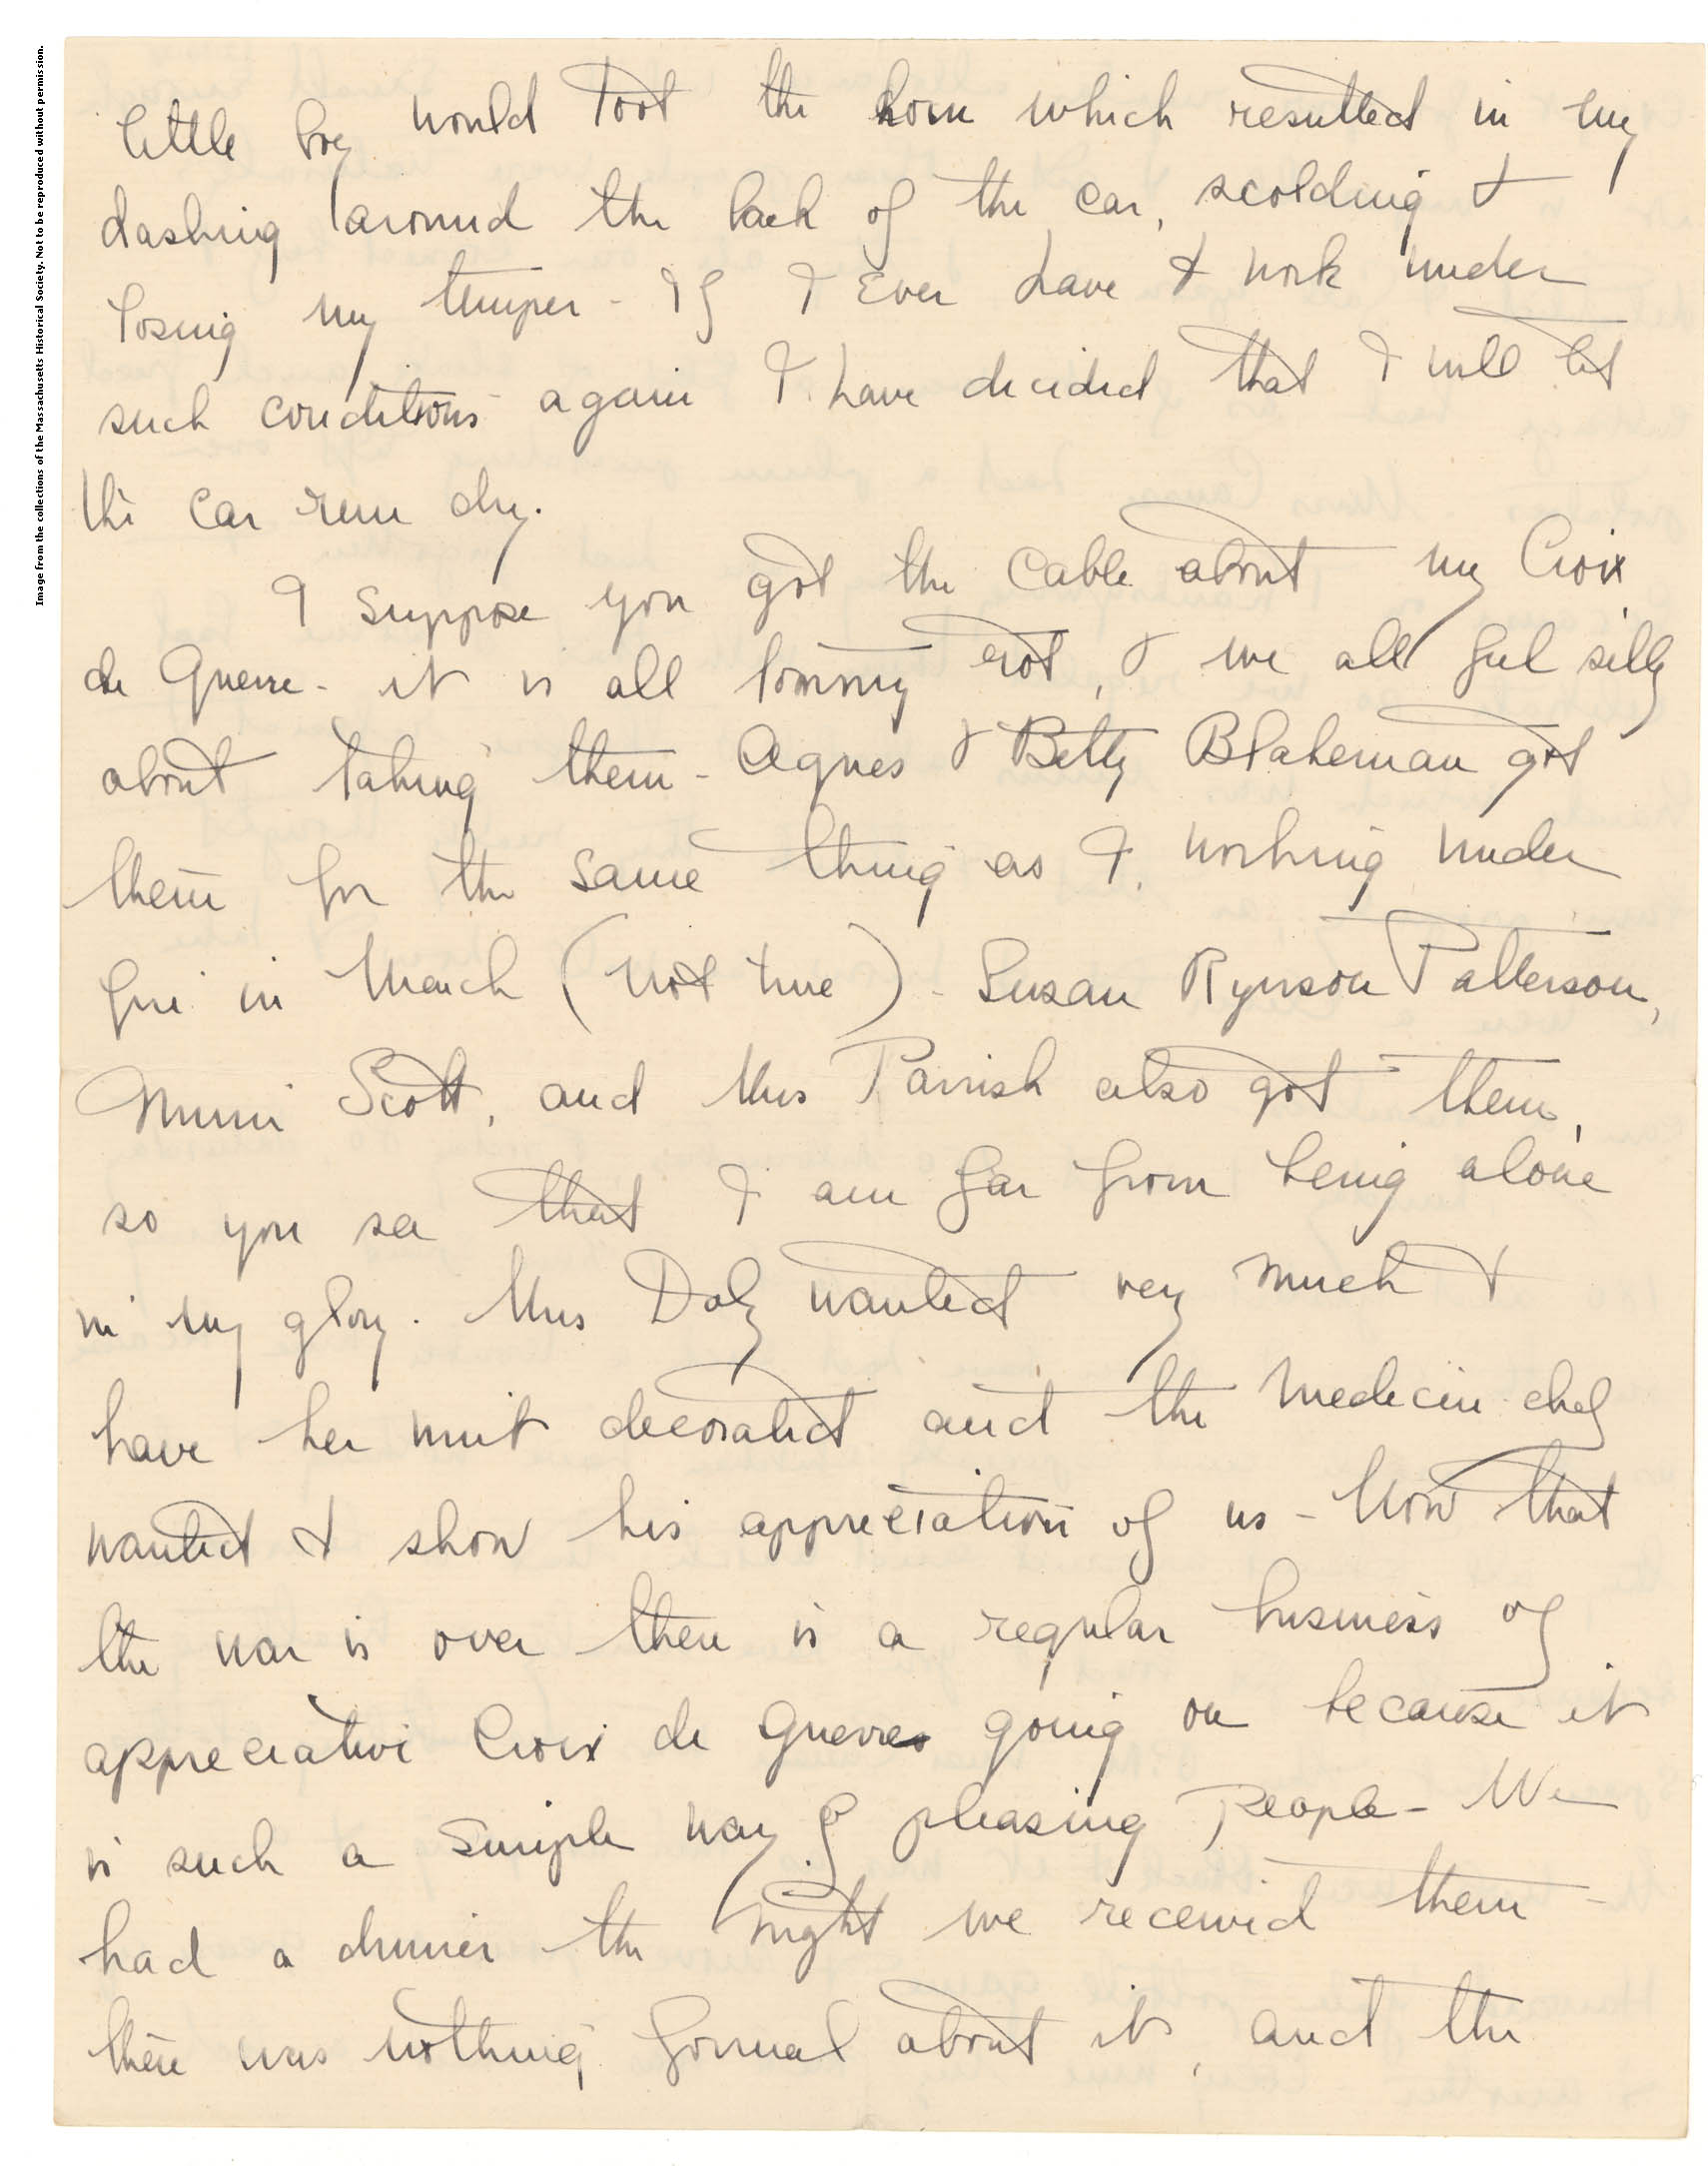 Image from the collections of the Massachusetts Historical Society. Not to be reproduced without permission.
little boy would toot the horn which resulted in my
dashing around the back of the car, scolding &
losing my temper - If I ever have to work under
such conditions again I have decided that I will let
the car run dry.
I suppose you got the cable about my Croix
de Guerre - it is all tommy rot, & we all feel silly
about taking them - Agnes & Betty Blakeman got
them for the same thing as I, working under
fire in March (not true) - Susan Rynson Patterson,
Mimi Scott, and Mrs Parrish also got them,
so you see that I am far from being alone
in my glory. Mrs Daly wanted very much to
have her unit decorated and the medecin chef
wanted to show his appreciation of us - Now that
the war is over there is a regular business of
appreciative Croix de Guerres going on because it
is such a simple way of pleasing people - We
had a dinner the night we received them -
there was nothing formal about it, and the